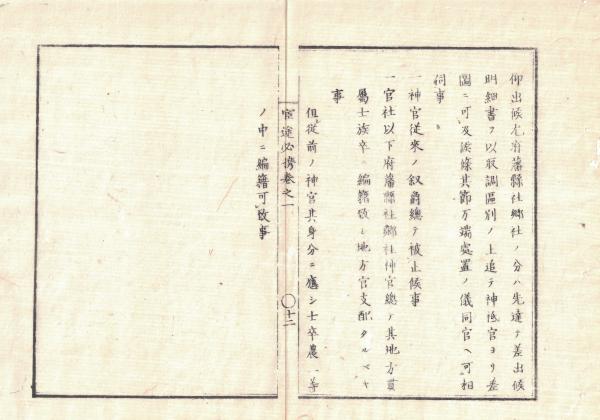 仰出候尤府藩縣社鄉社ノ分ハ先達テ差出候
明細書ヲ以取調區別ノ上追テ神祗官ヨリ差
圖ニ可及候條其節万端處置ノ儀同官ヘ可相
伺事
一神官従來ノ叙爵總テ被止候事
一官社以下府藩縣社鄉社神官總テ其地方貫
屬士族卒ニ編籍致シ地方官支配タルヘキ
事
但従前ノ神官其身分ニ應シ士卒農ノ等
官途必携巻之一
〇十二
ノ中ニ編籍可致事